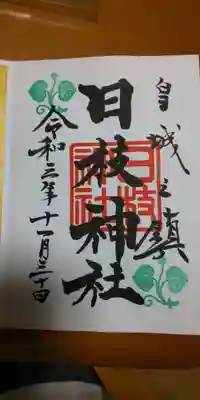 皇城之鎮
日枝神社
日枝神社
令和三年十一月三十日